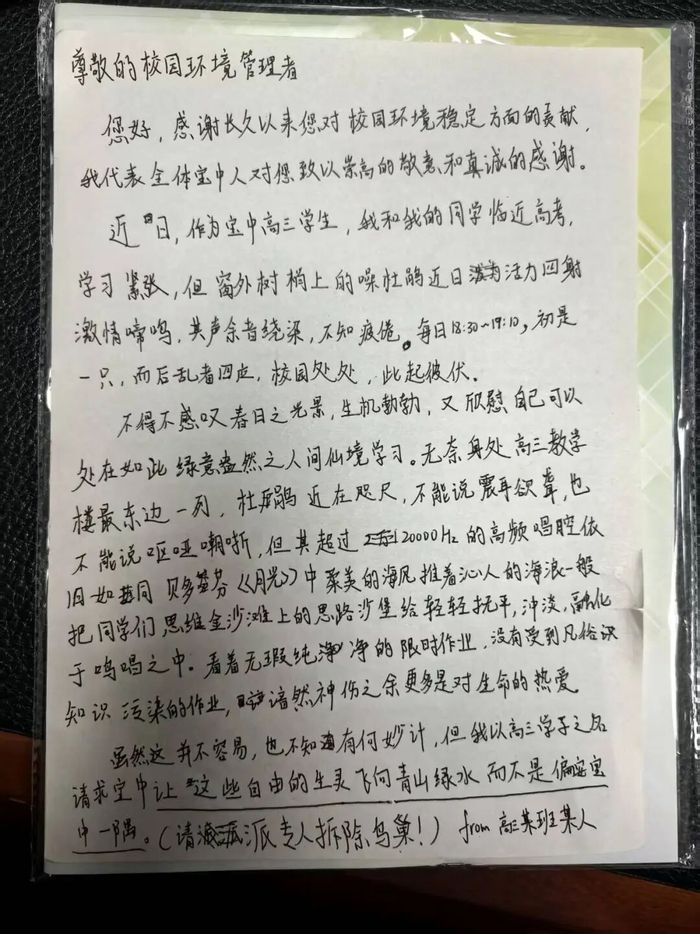 尊敬的校园环境管理者
您好，感谢长久以来您对校园环境稳定方面的贡献，
我代表全体宝中人对您致以崇高的敬意和真诚的感谢。
近日，作为宝中高三学生，我和我的同学临近高考，
学习紧张，但窗外树梢上的噪杜鹃近日活力四射
激情啼鸣，其声余音绕梁，不知疲倦。每日18:30~19:10，初是
一只，而后乱者四应，校园处处，此起彼伏。
不得不感叹春日之光景，生机勃勃，又欣慰自己可以
处在如此绿意盎然之人间仙境学习。无奈身处高三教学
楼最东边一列，杜鹃近在咫尺，不能说震耳欲聋，也
不能说呕哑嘲哳，但其超过20000Hz的高频唱腔依
旧如同贝多芬《月光》中柔美的海风推着沁人的海浪一般
把同学们思维金沙滩上的思路沙堡给轻轻抚平，冲淡，融化
于鸣唱之中。看着无瑕纯净的限时作业，没有受到凡俗
知识污染的作业，谙然神伤之余更多是对生命的热爱
虽然这并不容易，也不知有何妙计，但我以高三学子之名
请求宝中让这些自由的生灵飞向青山绿水而不是偏安宝
中一隅。（请派专人拆除鸟巢！） from 高三某班某人